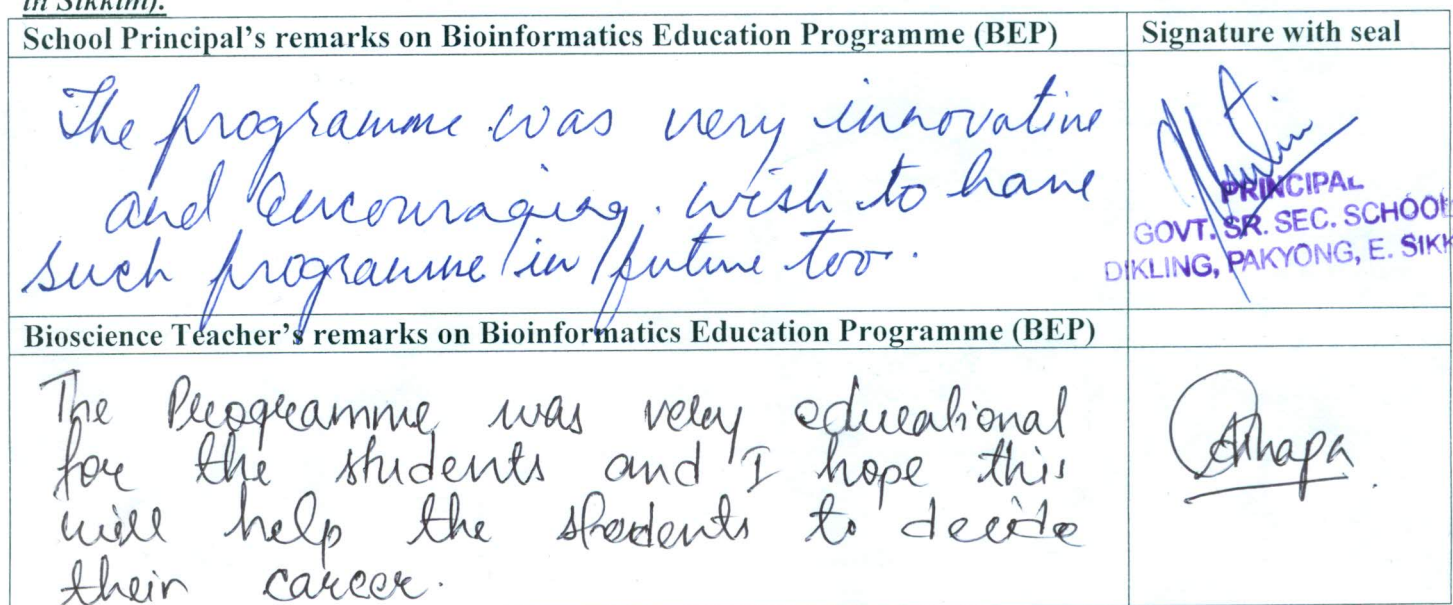 in Sikkim).
School Principal's remarks on Bioinformatics Education Programme (BEP)
Signature with seal
The programme was very innovative
and encouraging. wish to have
such programme in future too.
PRINCIPAL
GOVT. SR. SEC. SCHOOL
DIKLING, PAKYONG, E. SIKK
Bioscience Teacher's remarks on Bioinformatics Education Programme (BEP)
The Programme was very educational
for the students and I hope this
will help the students to decide
their career.